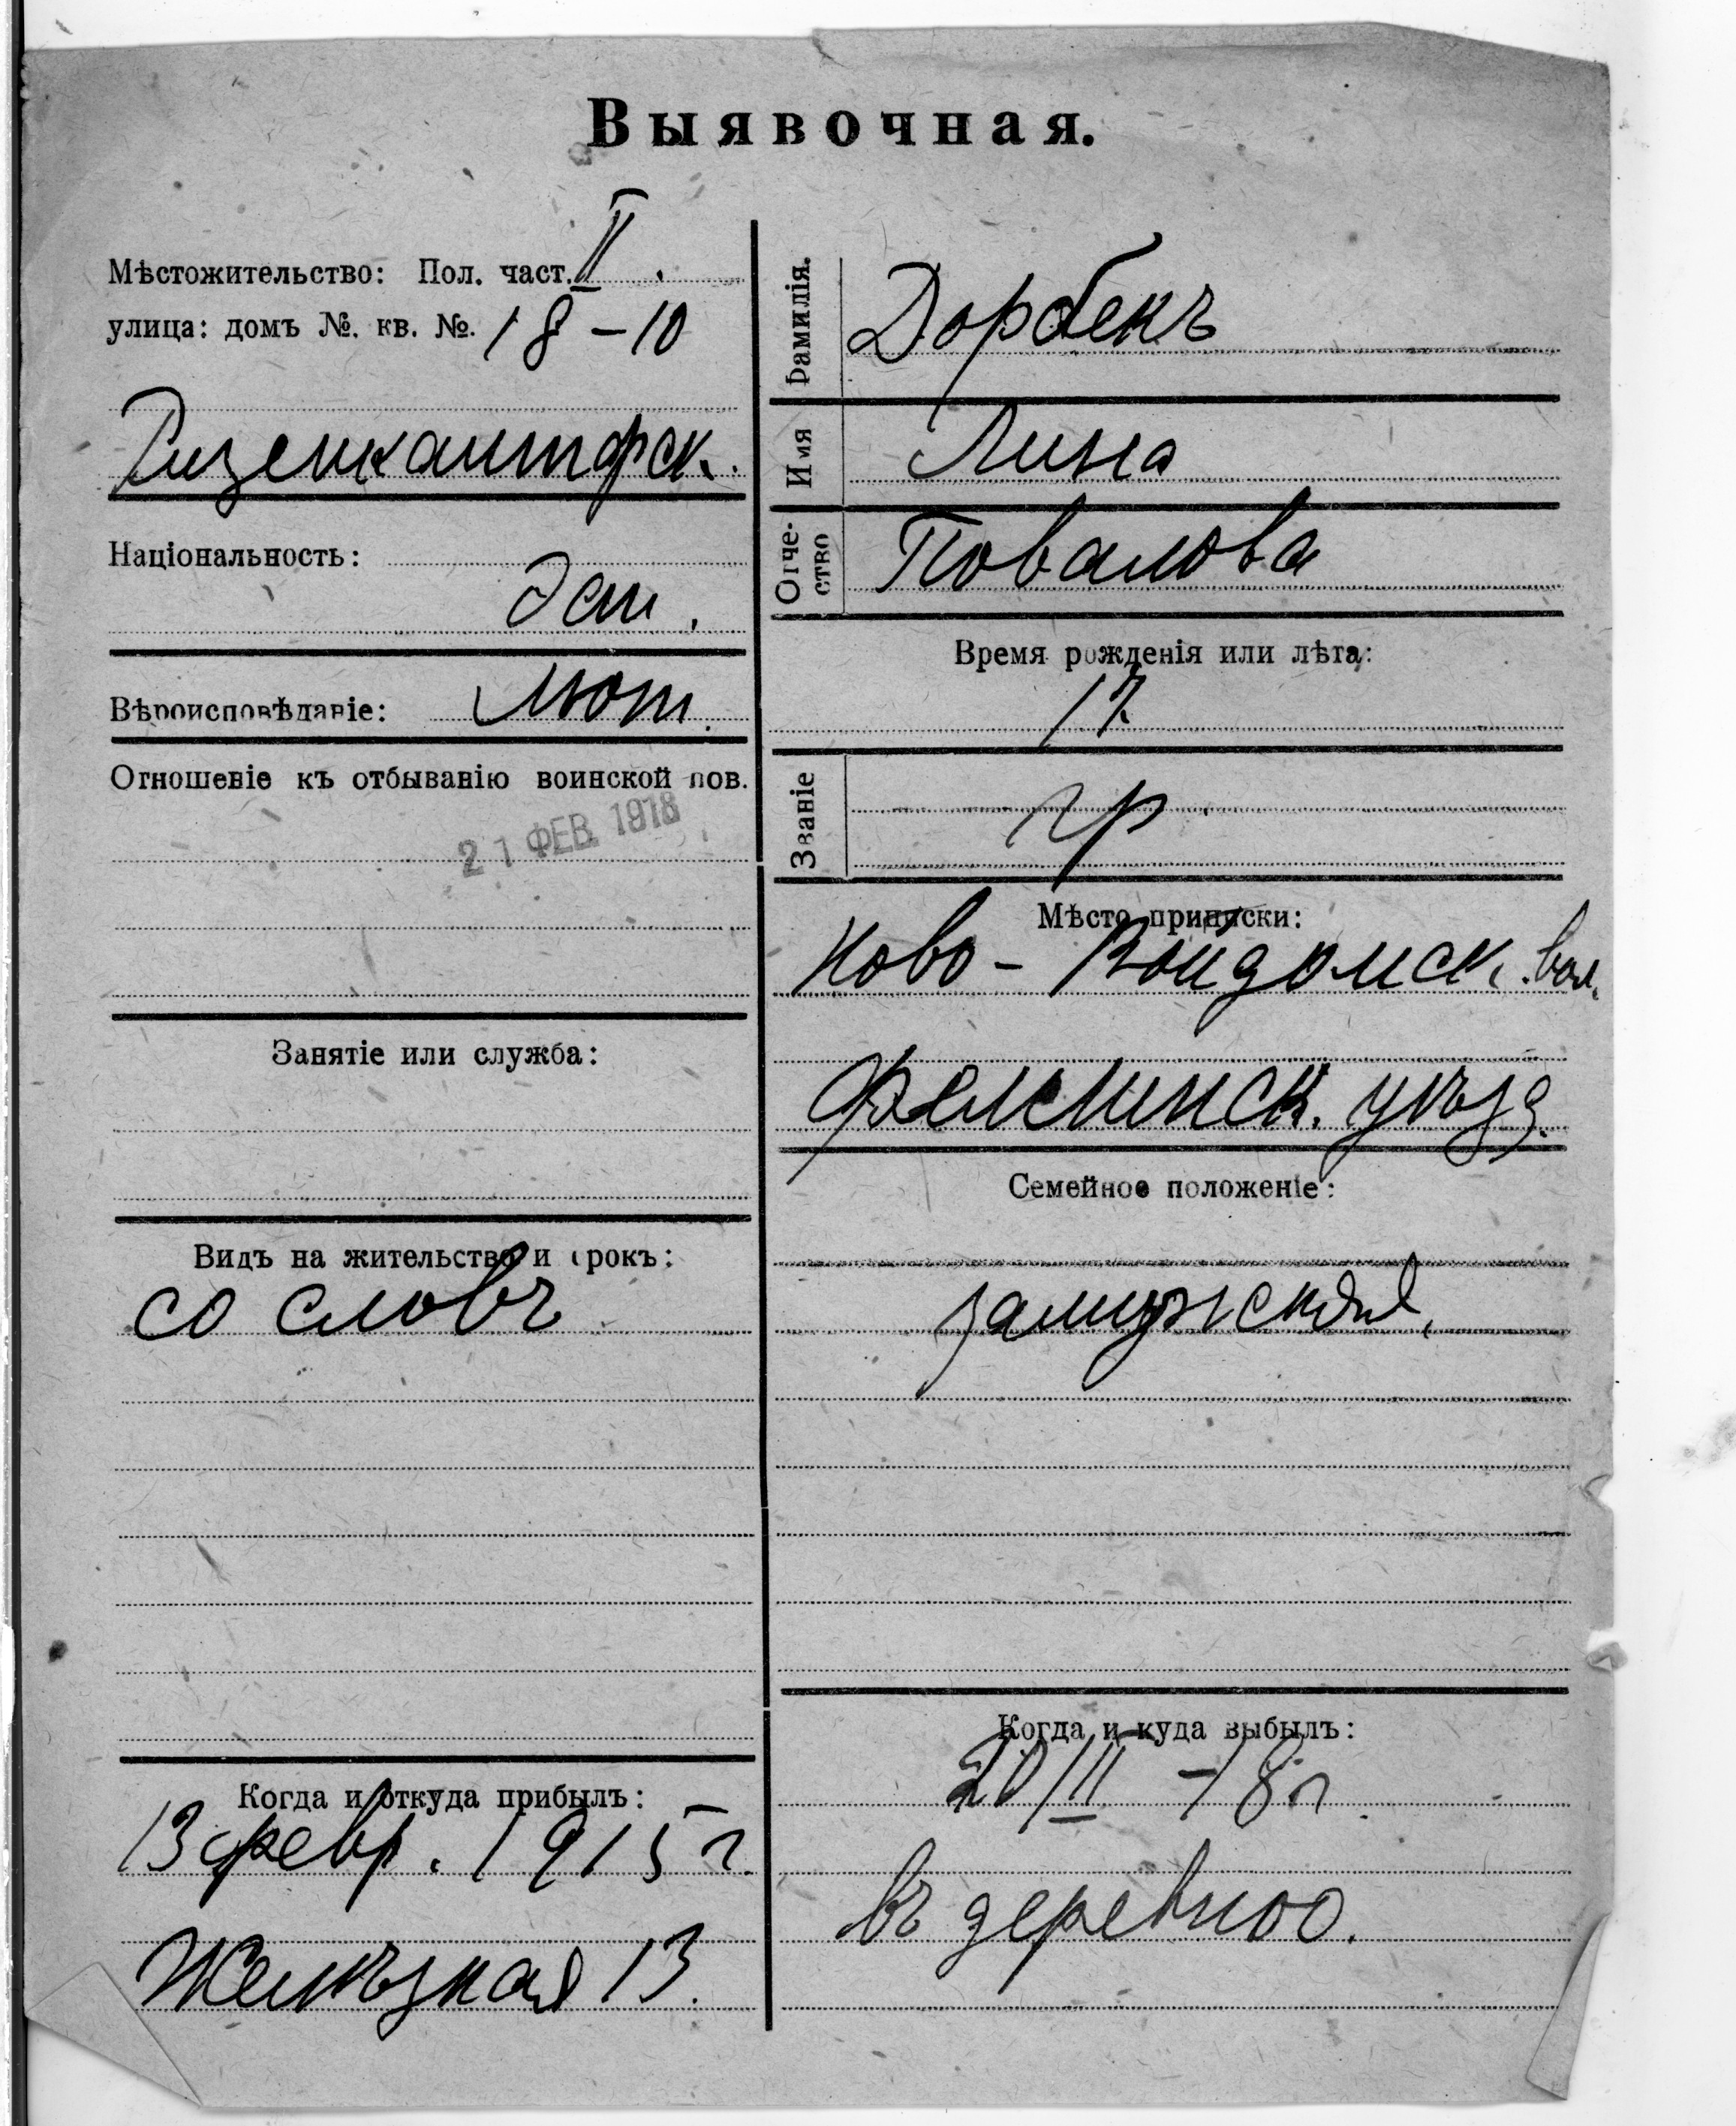 Выявочная.
Мѣстожительство: Пол. част. II.
улица: домъ №. кв. №. 18–10
Ризенкампфск.
Національность:
Эст.
Вѣроисповѣданіе: Лют.
Отношеніе къ отбыванію воинской пов.
21 ФЕВ. 1918
Занятіе или служба:
Видъ на жительство и срокъ:
со словъ
Когда и откуда прибылъ:
13 февр. 1915 г.
Желѣзная 13.
Фамилія. Дорбекъ
Имя Лина
Отчество
Время рожденія или лѣта:
17.
Званіе гр.
Мѣсто приписки:
Ново-Войдомск. вол.
Феллинск. уѣзд.
Семейное положеніе:
замужняя.
Когда и куда выбылъ:
20/II –18 г.
въ деревню.